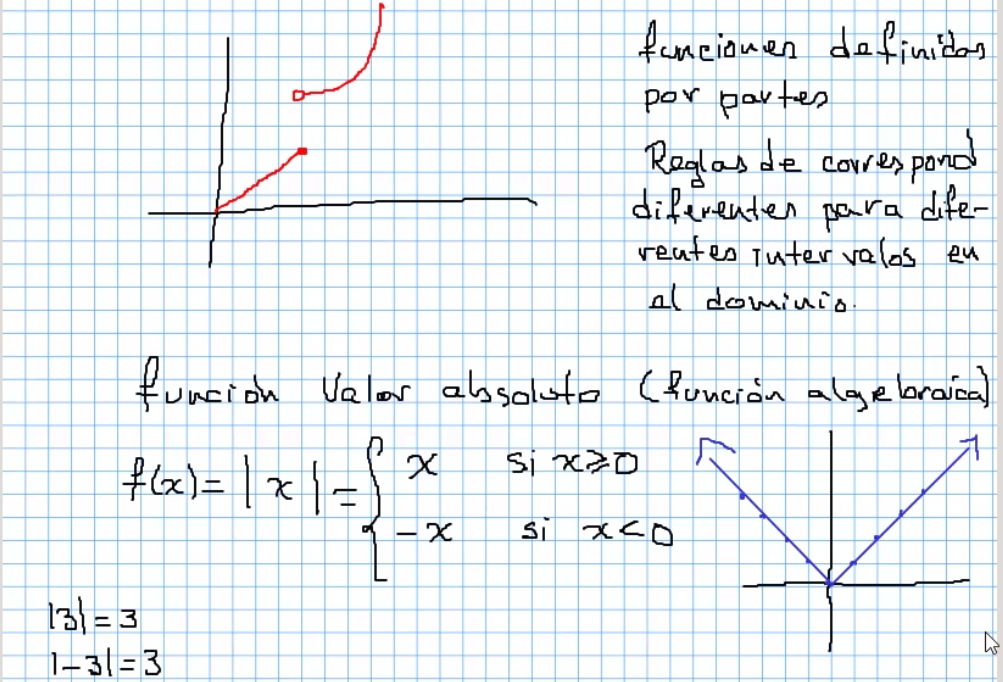 funciones definidas
por partes
Reglas de correspond
diferentes para dife-
rentes intervalos en
el dominio.
función Valor absoluto (función algebraica)
f(x)= |x| = { x si x≥0
-x si x<0
|3| = 3
|-3| = 3